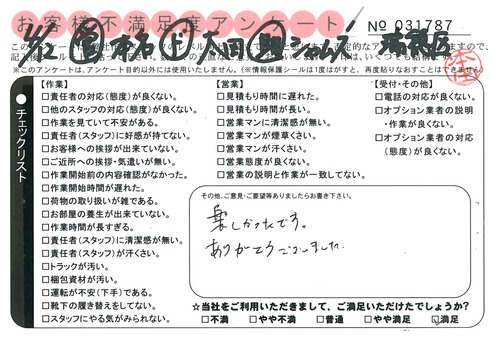 お客様不満足度アンケート
№ 031787
瑞穂区
※このアンケートは、アンケート目的以外には使用いたしません。(※情報保護シールは1度がすと、再度貼りなおすことはできません)
チェックリスト
【作業】
□責任者の対応(態度)が良くない。
□他のスタッフの対応(態度)が良くない。
□作業を見ていて不安がある。
□責任者(スタッフ)に好感が持てない。
□お客様への挨拶が出来ていない。
□ご近所への挨拶・気遣いが無い。
□作業開始前の内容確認がなかった。
□作業開始時間が遅れた。
□荷物の取り扱いが雑である。
□お部屋の養生が出来ていない。
□作業時間が長すぎる。
□責任者(スタッフ)に清潔感が無い。
□責任者(スタッフ)が汗くさい。
□トラックが汚い。
□梱包資材が汚い。
□運転が不安(下手)である。
□靴下の履き替えをしてない。
□スタッフにやる気がみられない。
【営業】
□見積もり時間に遅れた。
□見積もり時間が長い。
□営業マンに清潔感が無い。
□営業マンが煙草くさい。
□営業マンが汗くさい。
□営業態度が良くない。
□営業の説明と作業が一致してない。
【受付・その他】
□電話の対応が良くない。
□オプション業者の説明
・作業が良くない。
□オプション業者の対応
(態度)が良くない。
その他、ご意見・ご要望等ありましたらお書き下さい。
楽しかったです。
ありがとうございました.
☆当社をご利用いただきまして、ご満足いただけたでしょうか?
□不満 □やや不満 □普通 □やや満足 □満足